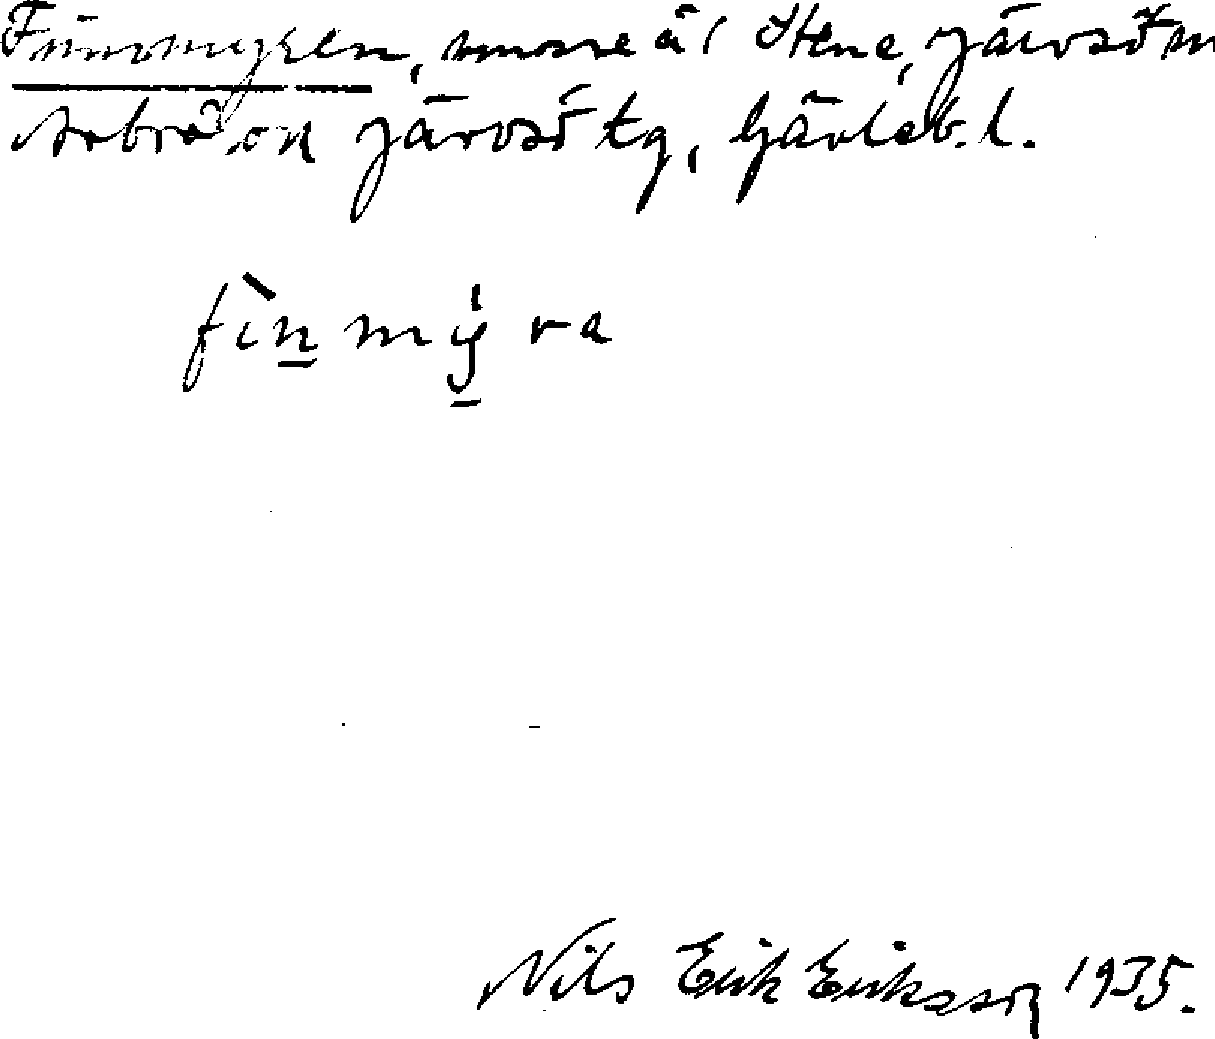 Finnmyren, mosse å Stene, Järvsö sn
Arbrå o. Järvsö tg, Gävleb. l.
fìn mý ra
Nils Erik Eriksson 1935.